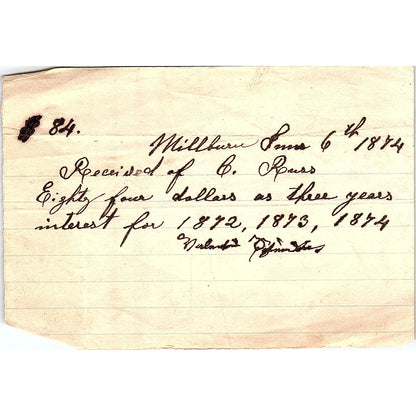 $ 84.
Millburn June 6th 1874
Received of C. Russ
Eighty four dollars as three years
interest for 1872, 1873, 1874